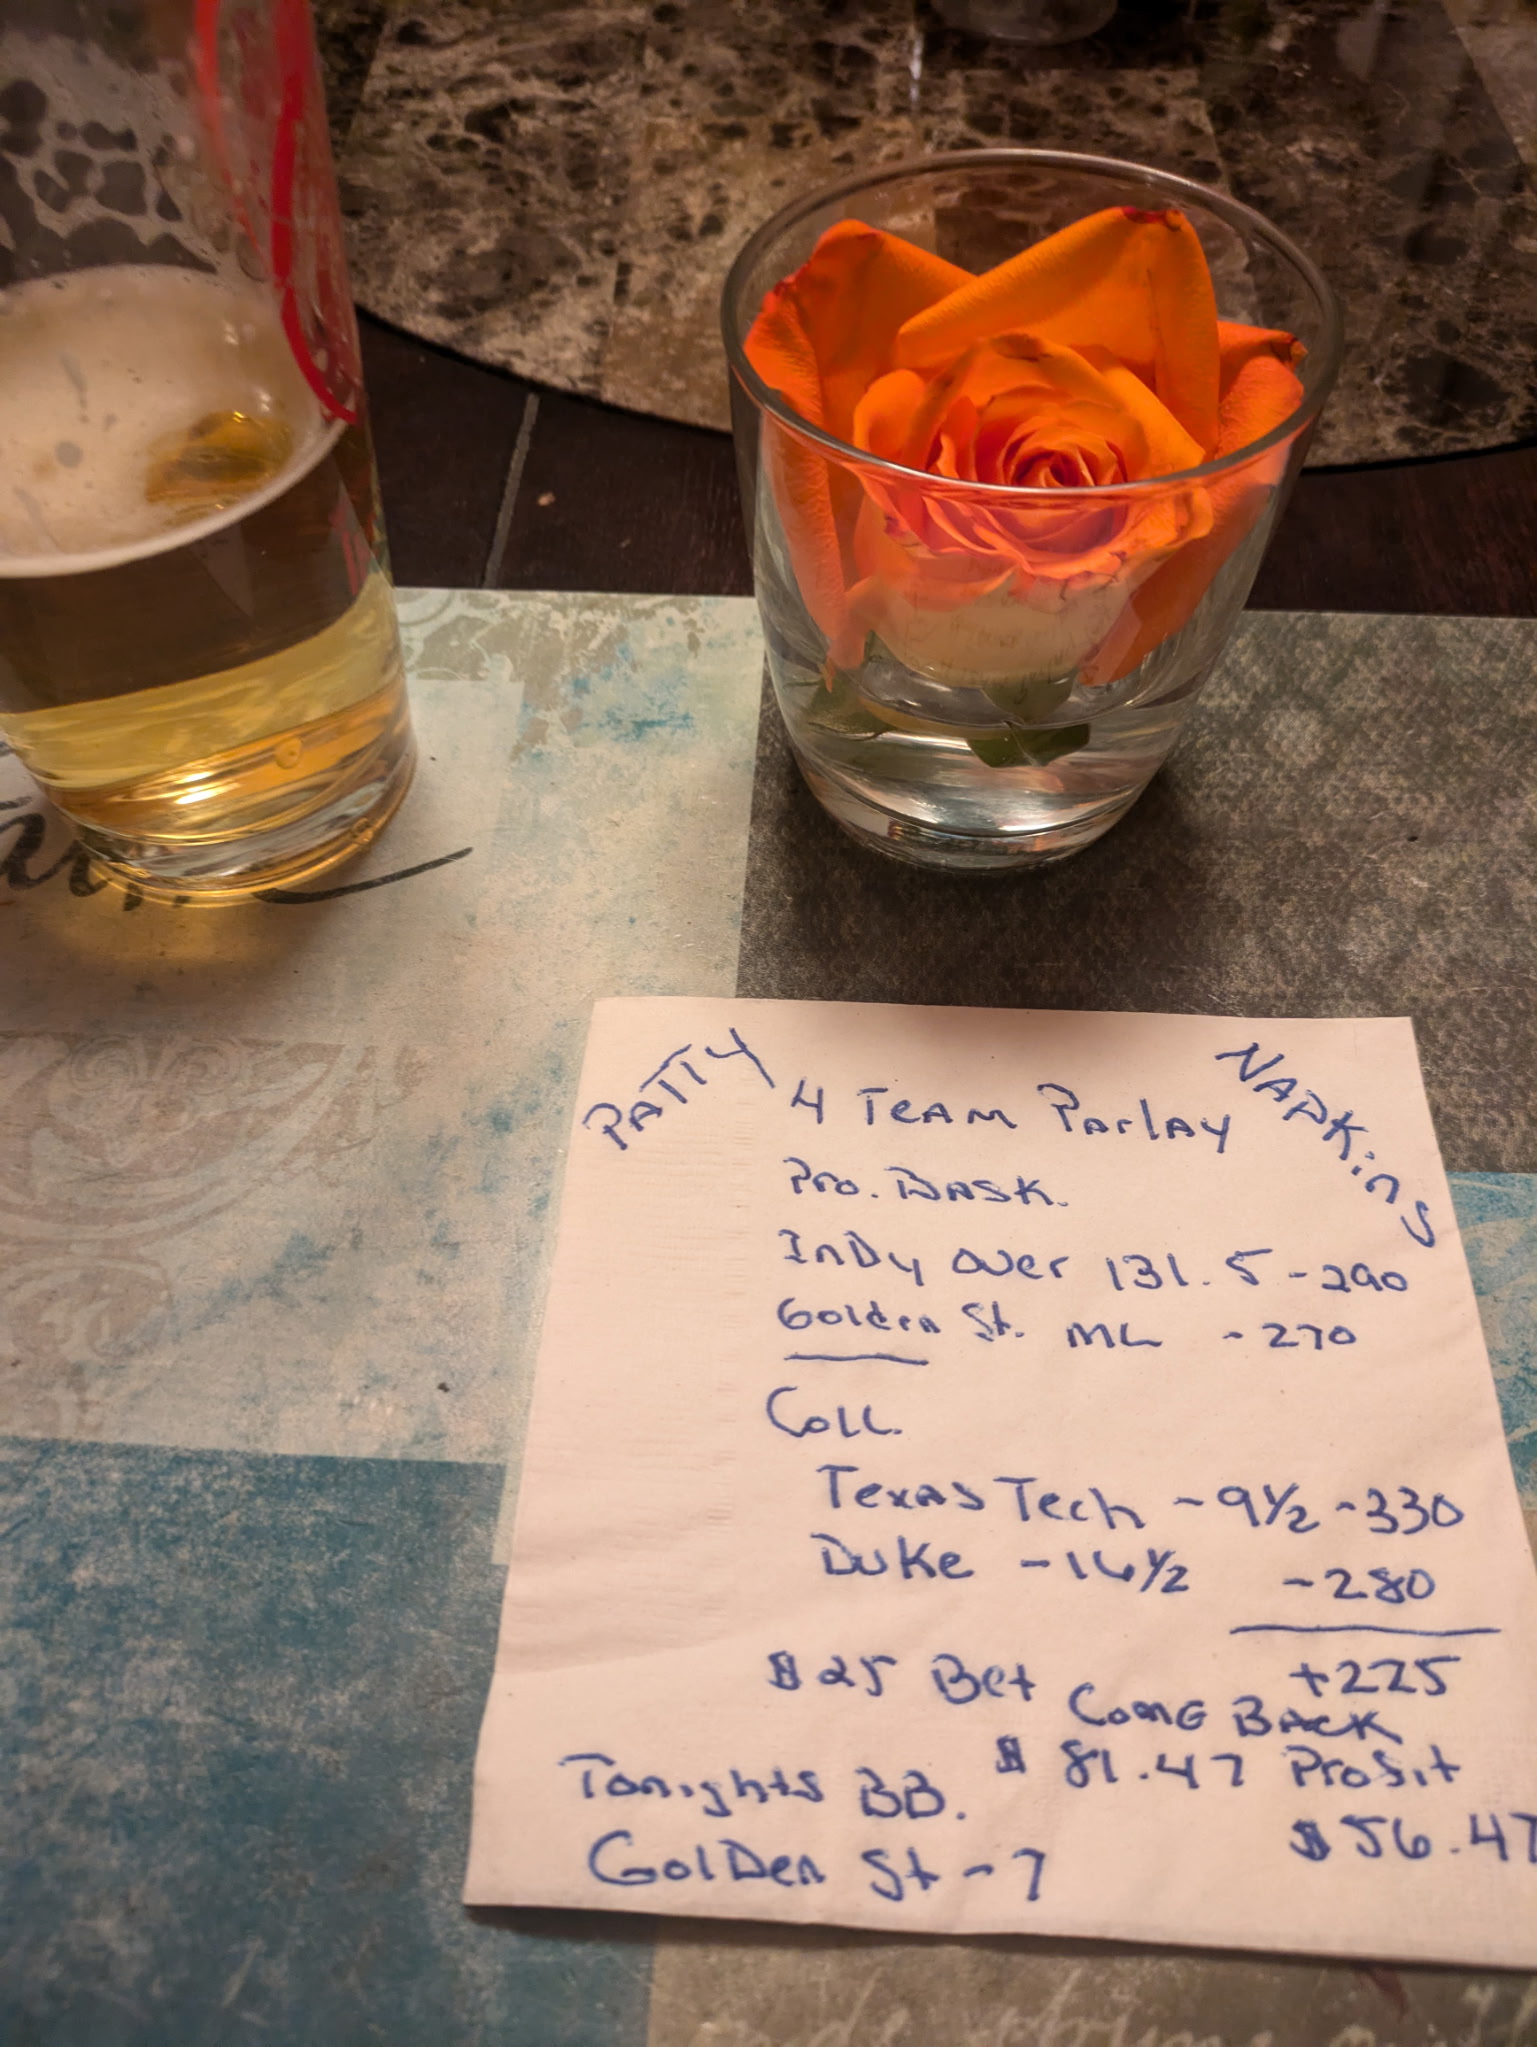 PATTY
NAPKins
4 TEAM Parlay
Pro. BASK.
InDy over 131.5 -290
Golden St. ML -270
Coll.
Texas Tech -9½ -330
Duke -16½ -280
$25 Bet +225
Come BACK
$81.47 Profit
$56.47
Tonights BB.
GolDen St -7